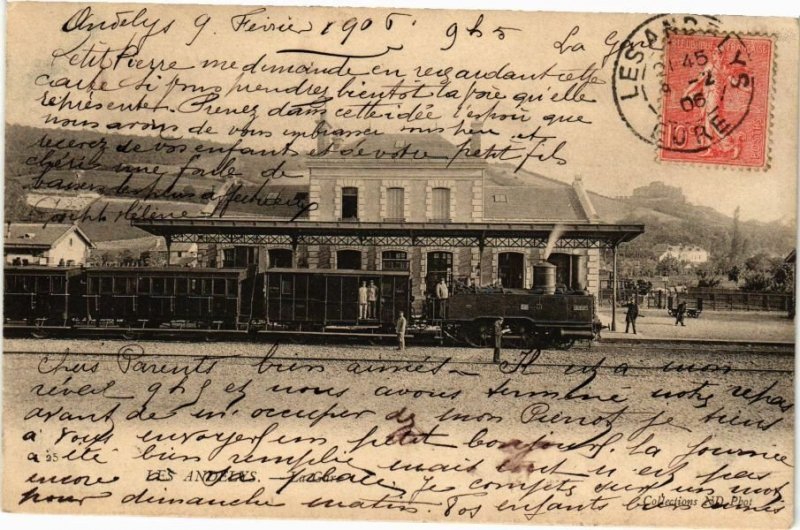 Andelys 9 Février 1906 9h5
La Gare
Petit Pierre me demande en regardant cette
carte si vous prendrez bientôt la voie qu'elle
représente. Prenez dans cette idée l'espoir que
nous avons de vous embrasser sous peu et
recevez de vos enfants et de votre petit fils
chéris une foule de
baisers les plus affectueux
Hélène
LES ANDELYS
EURE
45
9 -2
06
REPUBLIQUE FRANÇAISE
10
Chers Parents bien aimés - Il y a mon
réveil 9h5 et nous avons terminé notre repas
avant de m'occuper de mon Pierrot je tiens
à vous envoyer un petit bonjour. La journée
a été bien remplie mais tout n'est pas
encore en place. Je compte sur un mot
pour dimanche matin Vos enfants bien aimés
25
LES ANDELYS. La Gare
Collections ND Phot